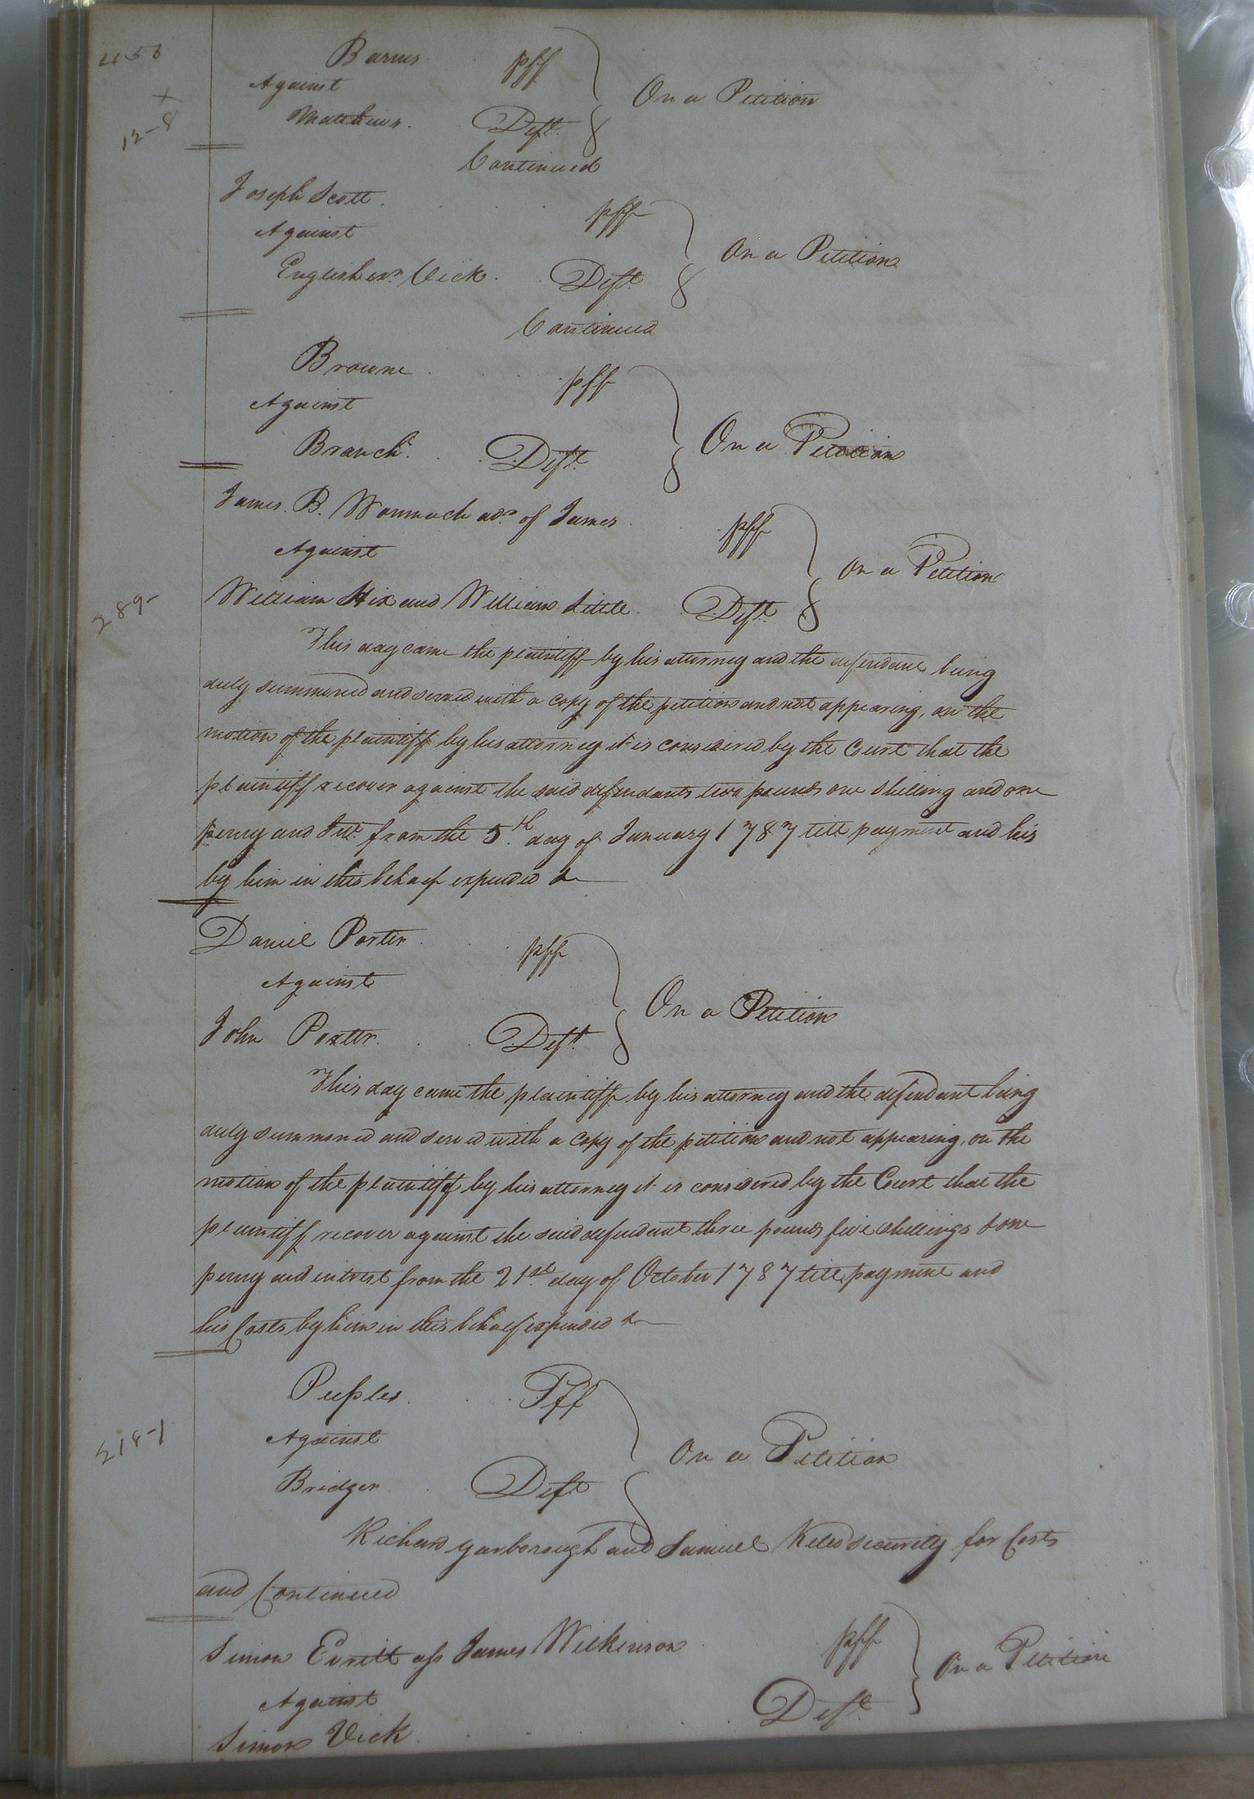 456
Barns pff
Against On a Petition
12-8
Matthews. Deft.
Continued
Joseph Scott. pff
Against On a Petition
English exr. Vick. Deft
Continued
Browne pff
Against
On a Petition
Branch. Deft.
James. B. Wommack ads. of James pff
Against On a Petition
289-
William Hix and William Little Deft.
This day came the plaintiff by his attorney and the defendant being
duly summoned and served with a copy of the petition and not appearing, on the
motion of the plaintiff by his attorney it is considered by the Court that the
plaintiff recover against the said defendants two pounds one shilling and one
penny and Intt. from the 5th. day of January 1787 till payment and his
by him in this behalf expended &
Daniel Porter pff
Against
On a Petition
John Porter. Deft.
This day came the plaintiff by his attorney and the defendant being
duly summoned and served with a copy of the petition and not appearing, on the
motion of the plaintiff by his attorney it is considered by the Court that the
plaintiff recover against the said defendant three pounds five shillings & one
penny and intrest from the 21st. day of October 1787 till payment and
his Costs by him in this behalf expended &
Peoples. Pff
Against
218-1
On a Petition
Bridger Deft
Richard Yarborough and Samuel Kello security for Costs
and Continued
Simon Evritt ass James Wilkinson pff
On a Petition
Against
Simon Vick. Deft.